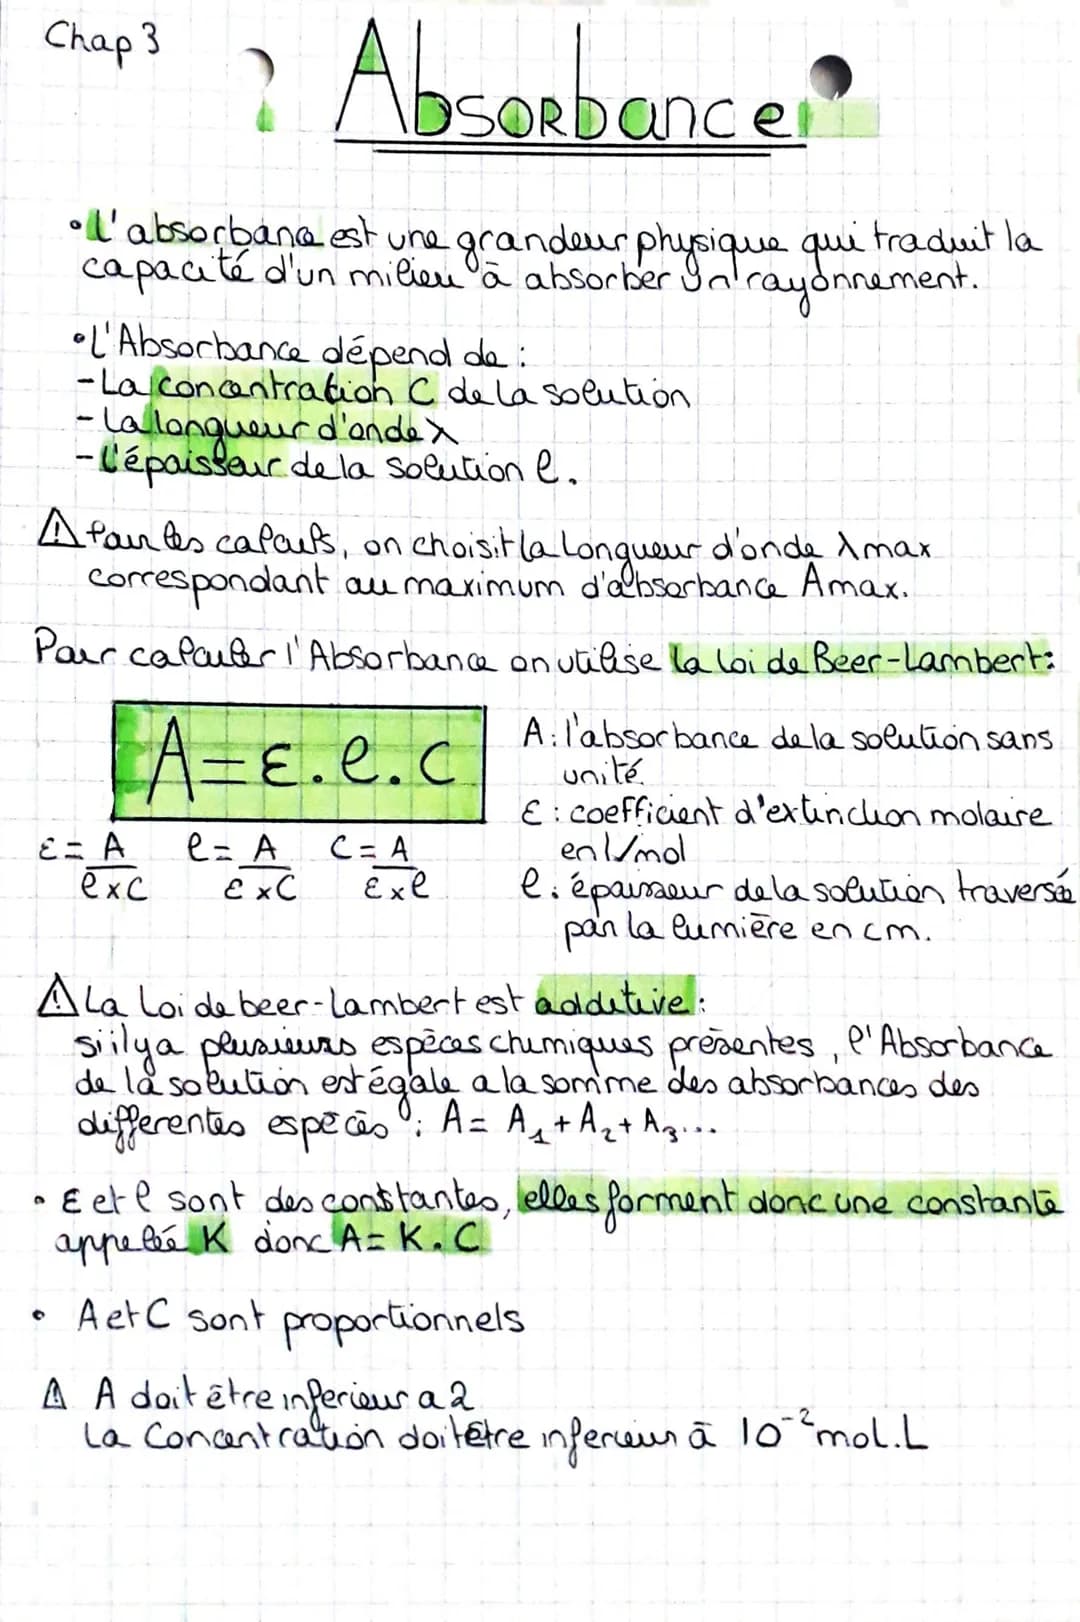 Chap 3
Absorbance
• L'absorbance est une grandeur physique qui traduit la
capacité d'un milieu à absorber un rayonnement.
• L'Absorbance dépend de :
- La concentration C de la solution
- la longueur d'onde λ
- L'épaisseur de la solution l.
⚠ Pour les calculs, on choisit la longueur d'onde λmax
correspondant au maximum d'absorbance Amax.
Pour calculer l'Absorbance on utilise la loi de Beer-Lambert:
A = ε . l . C
ε = A / l x C   l = A / ε x C   C = A / ε x l
A : l'absorbance de la solution sans
unité
ε : coefficient d'extinction molaire
en L/mol
l : épaisseur de la solution traversée
par la lumière en cm.
⚠ La loi de beer-lambert est additive :
si il y a plusieurs espèces chimiques présentes, l'Absorbance
de la solution est égale a la somme des absorbances des
differentes espèces : A = A₁ + A₂ + A₃...
• ε et l sont des constantes, elles forment donc une constante
appelée K donc A = K . C
• A et C sont proportionnels
⚠ A doit être inferieur a 2
La Concentration doit être inferieur à 10⁻² mol.L